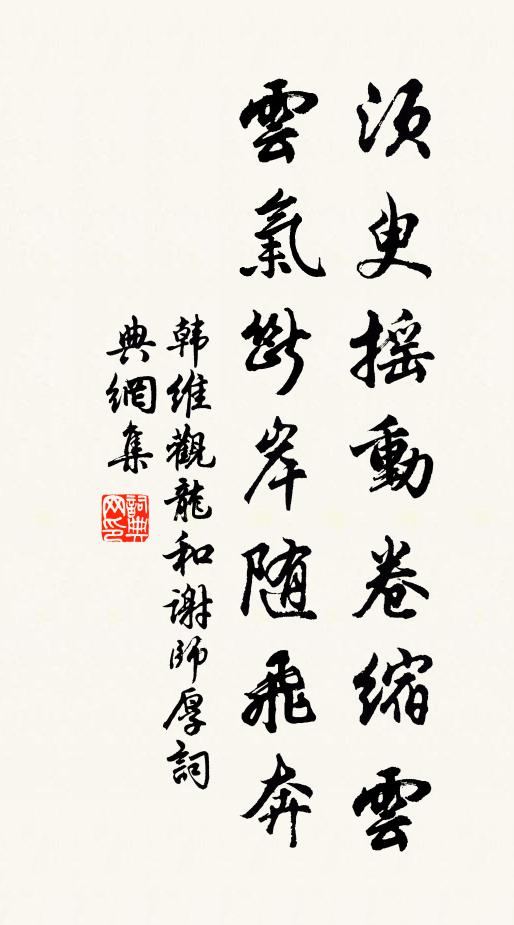 須臾摇動卷縮雲
雲氣斷岸随飛奔
韩維觀龍和谢師厚詞
典網集
詞典
网印